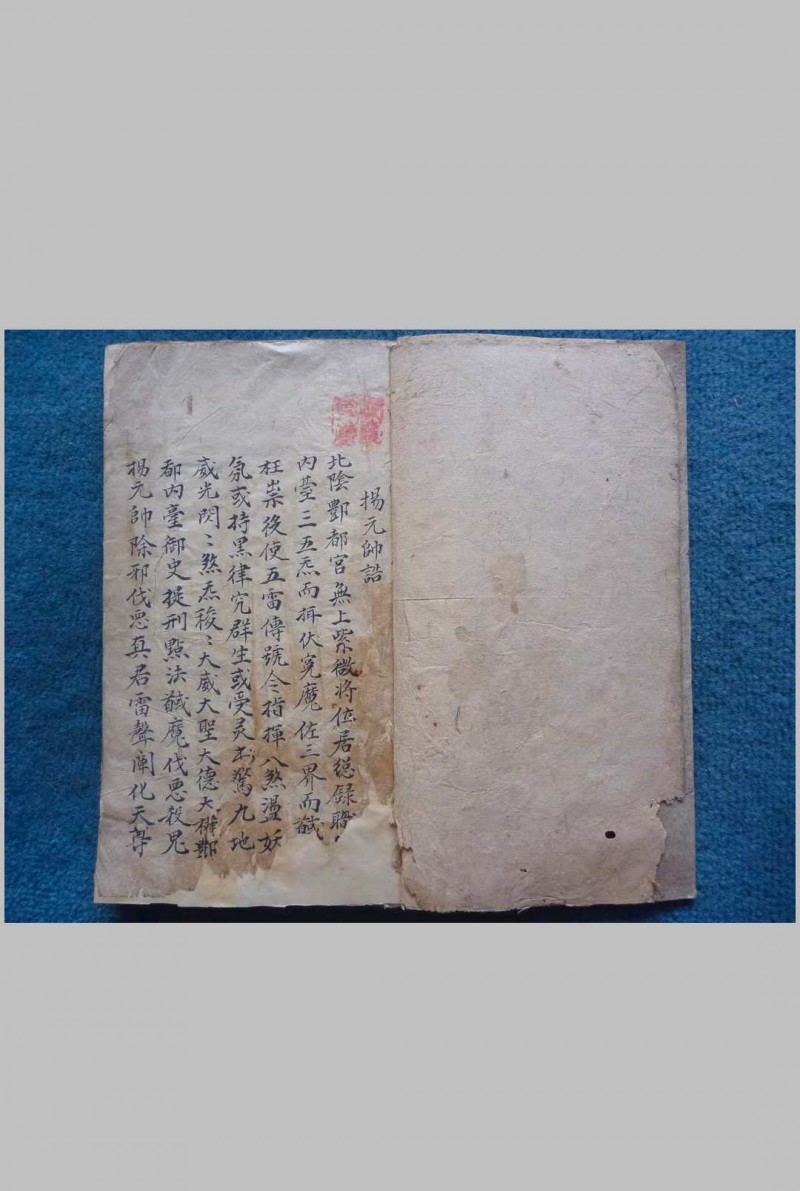 楊元帥誥
北陰酆都宮無上紫微將位居總録職
内臺三五炁而拜伏寃魔佐三界而馘
枉祟後使五雷傳號令指揮八煞盪妖
氛或持黑律究群生或受灵書驚九地
威光閃〻煞炁稜〻大威大聖大德大權酆
都内臺御史提刑點法馘魔伐惡殺鬼
楊元帥除邪伐惡真君雷聲闡化天尊